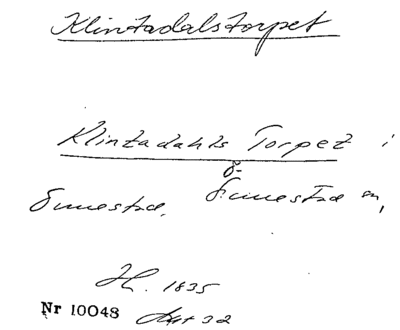 Klintadalstorpet
Klintadahls Torpet i
Simmestad, Ö. Simmestad sn,
Hf. 1835
Nr 10048 Akt 32